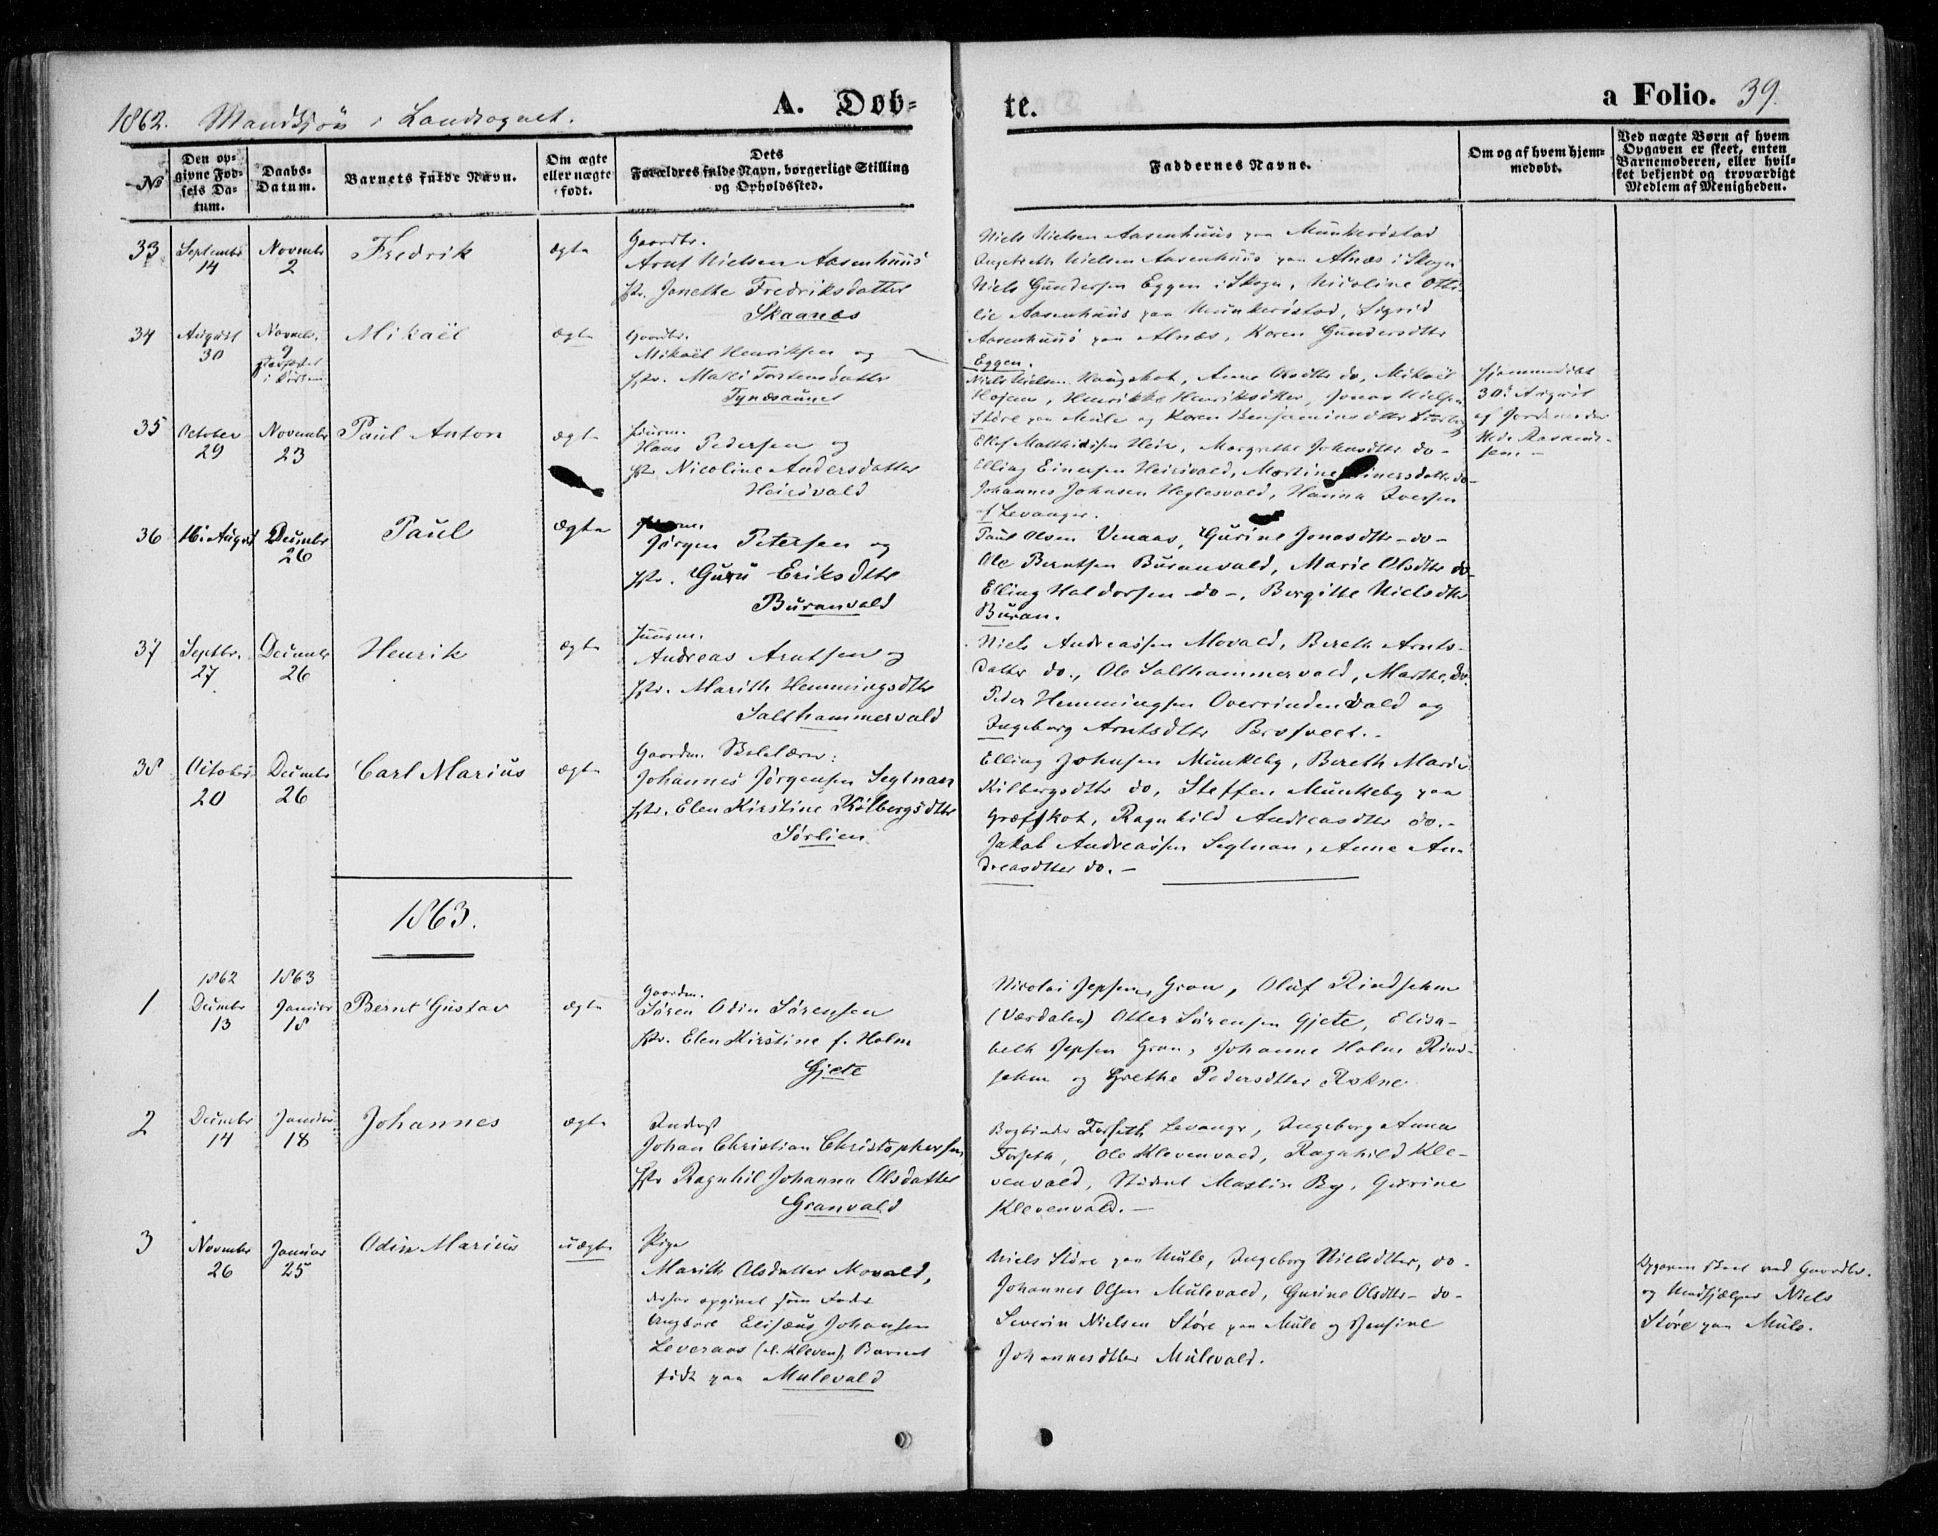 1862. Mandkjøn i Landsognet.
A. Døb-
te.
a Folio. 39.
No
Den opgivne Fødsels Datum.
Daabs-Datum.
Barnets fulde Navn.
Om ægte eller uægte født.
Dets Forældres fulde Navn, borgerlige Stilling og Opholdssted.
Faddernes Navne.
Om og af hvem hjemmedøbt.
Ved uægte Børn af hvem Opgaven er skeet, enten Barnemoderen, eller hvilket bekjendt og troværdigt Medlem af Menigheden.
33
Septembr 14
Novembr 2
Fredrik
ægte
Gaardbr.
Arnt Nielsen Aasenhuus
Hstr. Janette Fredriksdatter
Skaanes
Niels Nielsen Aasenhuus paa Munkerøstad
Nielsen Aasenhuus paa Alnæs i Skogn
Niels Gundersen Eggen i Skogn, Nicoline Otti-
lie Aasenhuus paa Munkerøstad, Sigrid
Aasenhuus paa Alnæs, Karen Gundersdtter
Eggen.
34
August 30
Novmb. 9
Mikael
ægte
Gaardbr.
Mikael Henriksen og
Hstr. Malli Torstensdatter
Tynæsaunet
Niels Nielsen Haugskot, Anne Olsdtter do, Mikael
Hojem, Henrikke Henriksdtter, Jonas Nielsen
Støre paa Mule og Karen Benjaminsdtter
Hjemmedøbt
30 August
af Jordemoder
35
October 29
Novembr 23
Paul Anton
ægte
Huusm.
Hans Pedersen og
Hstr. Nicoline Andersdatter
Heirsvald
Margrethe Johnsdtter do -
Elling Einersen Heirsvald, Martine Einersdatter do -
Johannes Johnsen Heglesvald, Hanna Iversen
af Levanger.
36
16 August
Decembr 26
Paul
ægte
Jørgen Petersen og
Hstr. Guru Eriksdtter
Buranvald
Paul Olsen Venaas, Gurine Jonasdtter - do -
Ole Berntsen Buranvald, Marie Olsdtter do -
Elling Haldorsen - do -, Bergitte Nielsdtter
Buran.
37
Septbr. 27
Decembr 26
Henrik
ægte
Huusm.
Andreas Arntsen og
Hstr. Marith Hemmingsdtter
Salthammervald
Niels Andreassen Movald, Bereth Arnts-
datter do., Ole Salthammervald, Marthe do.
Peder Hemmingsen Overrindenvald og
Ingeborg Arntsdtter
38
October 20
Decembr 26
Carl Marius
ægte
Gaardm. Skolelærer:
Johannes Jørgensen Segtnan
Hstr. Elen Kirstine Kilbergsdtter
Sørlien
Elling Johnsen Munkeby, Bereth Marie
Kilbergsdtter do, Steffen Munkeby paa
Græfskot, Ragnhild Andreasdtter do. -
Jakob Andreassen Segtnan, Anne An-
dreasdtter do. -
1863.
1862 1863
1
Decembr 13
Januar 18
Bernt Gustav
ægte
Gaardm.
Søren Odin Sørensen
Hstr. Elen Kirstine f. Holm
Gjete
Nicolai Jepsen Gran, Oluf Rindsehm
(Værdalen) Otter Sørensen Gjete, Elisa-
beth Jepsen Gran, Johanne Holm Rind-
sehm og Grethe Pedersdtter Rokne
2
Decembr 14
Januar 18
Johannes
ægte
Inderst
Johan Christian Christophersen,
Hstr Ragnhil Johanna Olsdatter
Granvald
Bogbinder Forseth Levanger, Ingeborg Anna
Forseth, Ole Klevenvald, Ragnhild Kle-
venvald, Student Martin By, Gurine
Klevenvald. -
3
Novembr 26
Januar 25
Odin Marius
uægte
Pige
Marith Olsdatter Movald,
derhar opgivet som Fader
Ungkarl Elisæus Johansen
Leveraas (el. Kleven), Barnet
født paa Mulevald
Niels Støre paa Mule, Ingeborg Nielsdtter, do -
Johannes Olsen Mulevald, Gurine Olsdtter - do -
Severin Nielsen Støre paa Mule og Jensine
Johannesdtter Mulevald.
Opgaven skeet ved Gaardbr.
og Medhjælper Niels
Støre paa Mule.